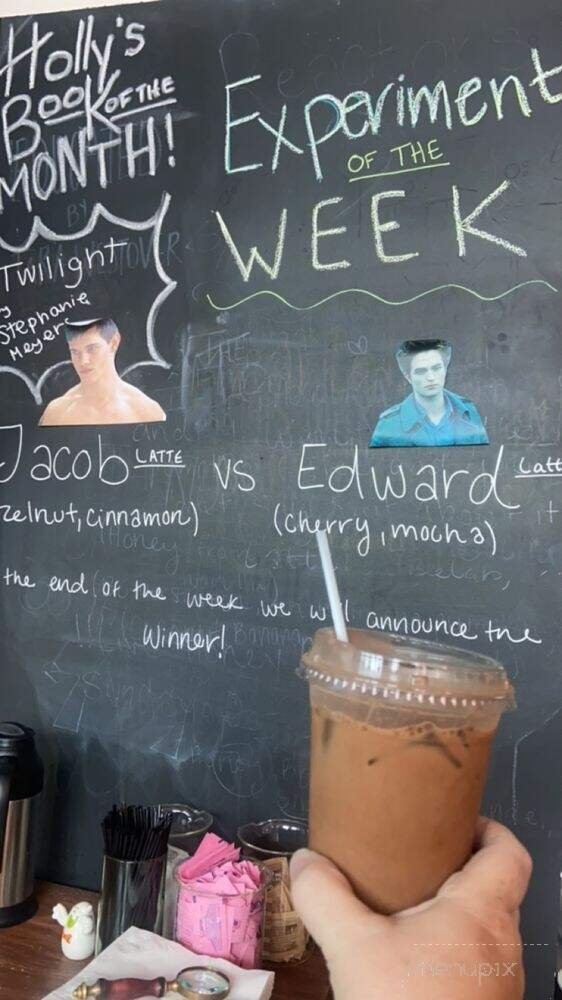 Holly's
Book OF THE
MONTH!
Twilight
Stephanie
Meyer
Experiment
OF THE
WEEK
Jacob LATTE vs Edward Latt
zelnut, cinnamon) (cherry, mocha)
the end of the week we will announce the
winner!
menupix